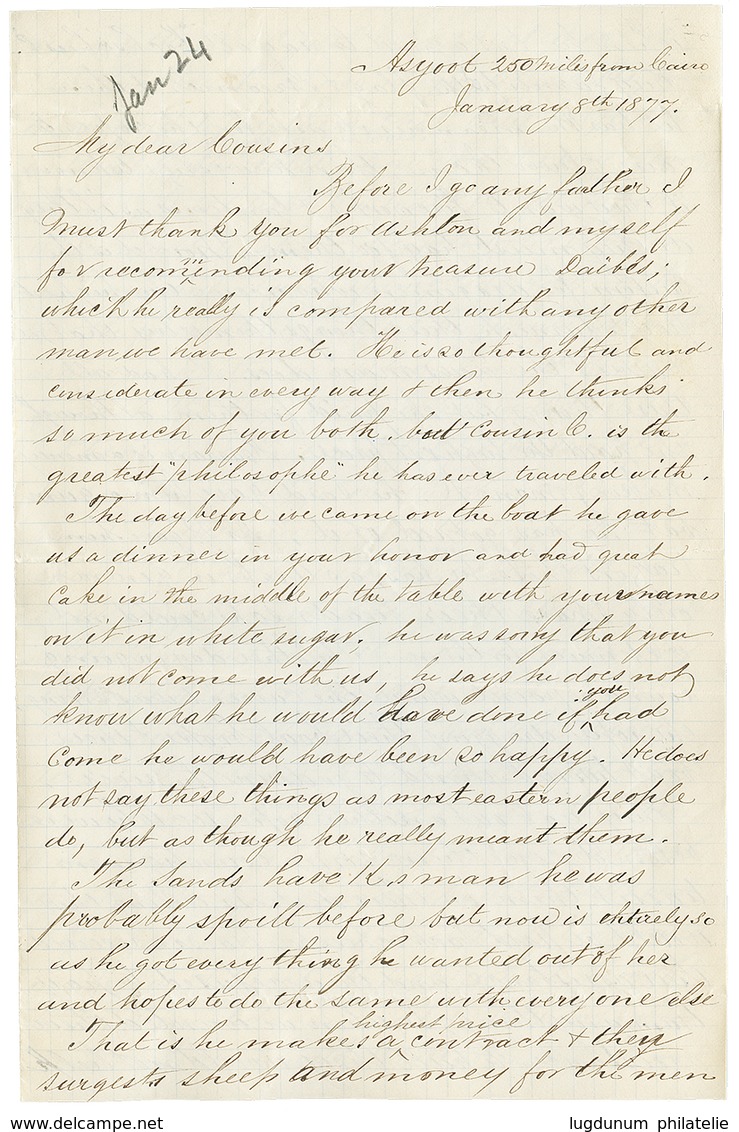 Jan 24
Asyoot 250 miles from Cairo
January 8th 1877.
My dear Cousins
Before I go any farther I
Must thank you for Ashton and myself
for recommending your treasure Daibes;
which he really is compared with any other
man we have met. He is so thoughtful and
considerate in every way & then he thinks
so much of you both. but Cousin C. is the
greatest "philosophe" he has ever traveled with.
The day before we came on the boat he gave
us a dinner in your honor and had great
cake in the middle of the table with your names
on it in white sugar. he was sorry that you
did not come with us, he says he does not
know what he would have done if you had
come he would have been so happy. He does
not say these things as most eastern people
do, but as though he really meant them.
The Sands have K,s man he was
probably spoilt before but now is entirely so
as he got every thing he wanted out of her
and hopes to do the same with every one else
That is he makes a highest price contract & then
surgests sheep and money for the men
lugdunum philatelie